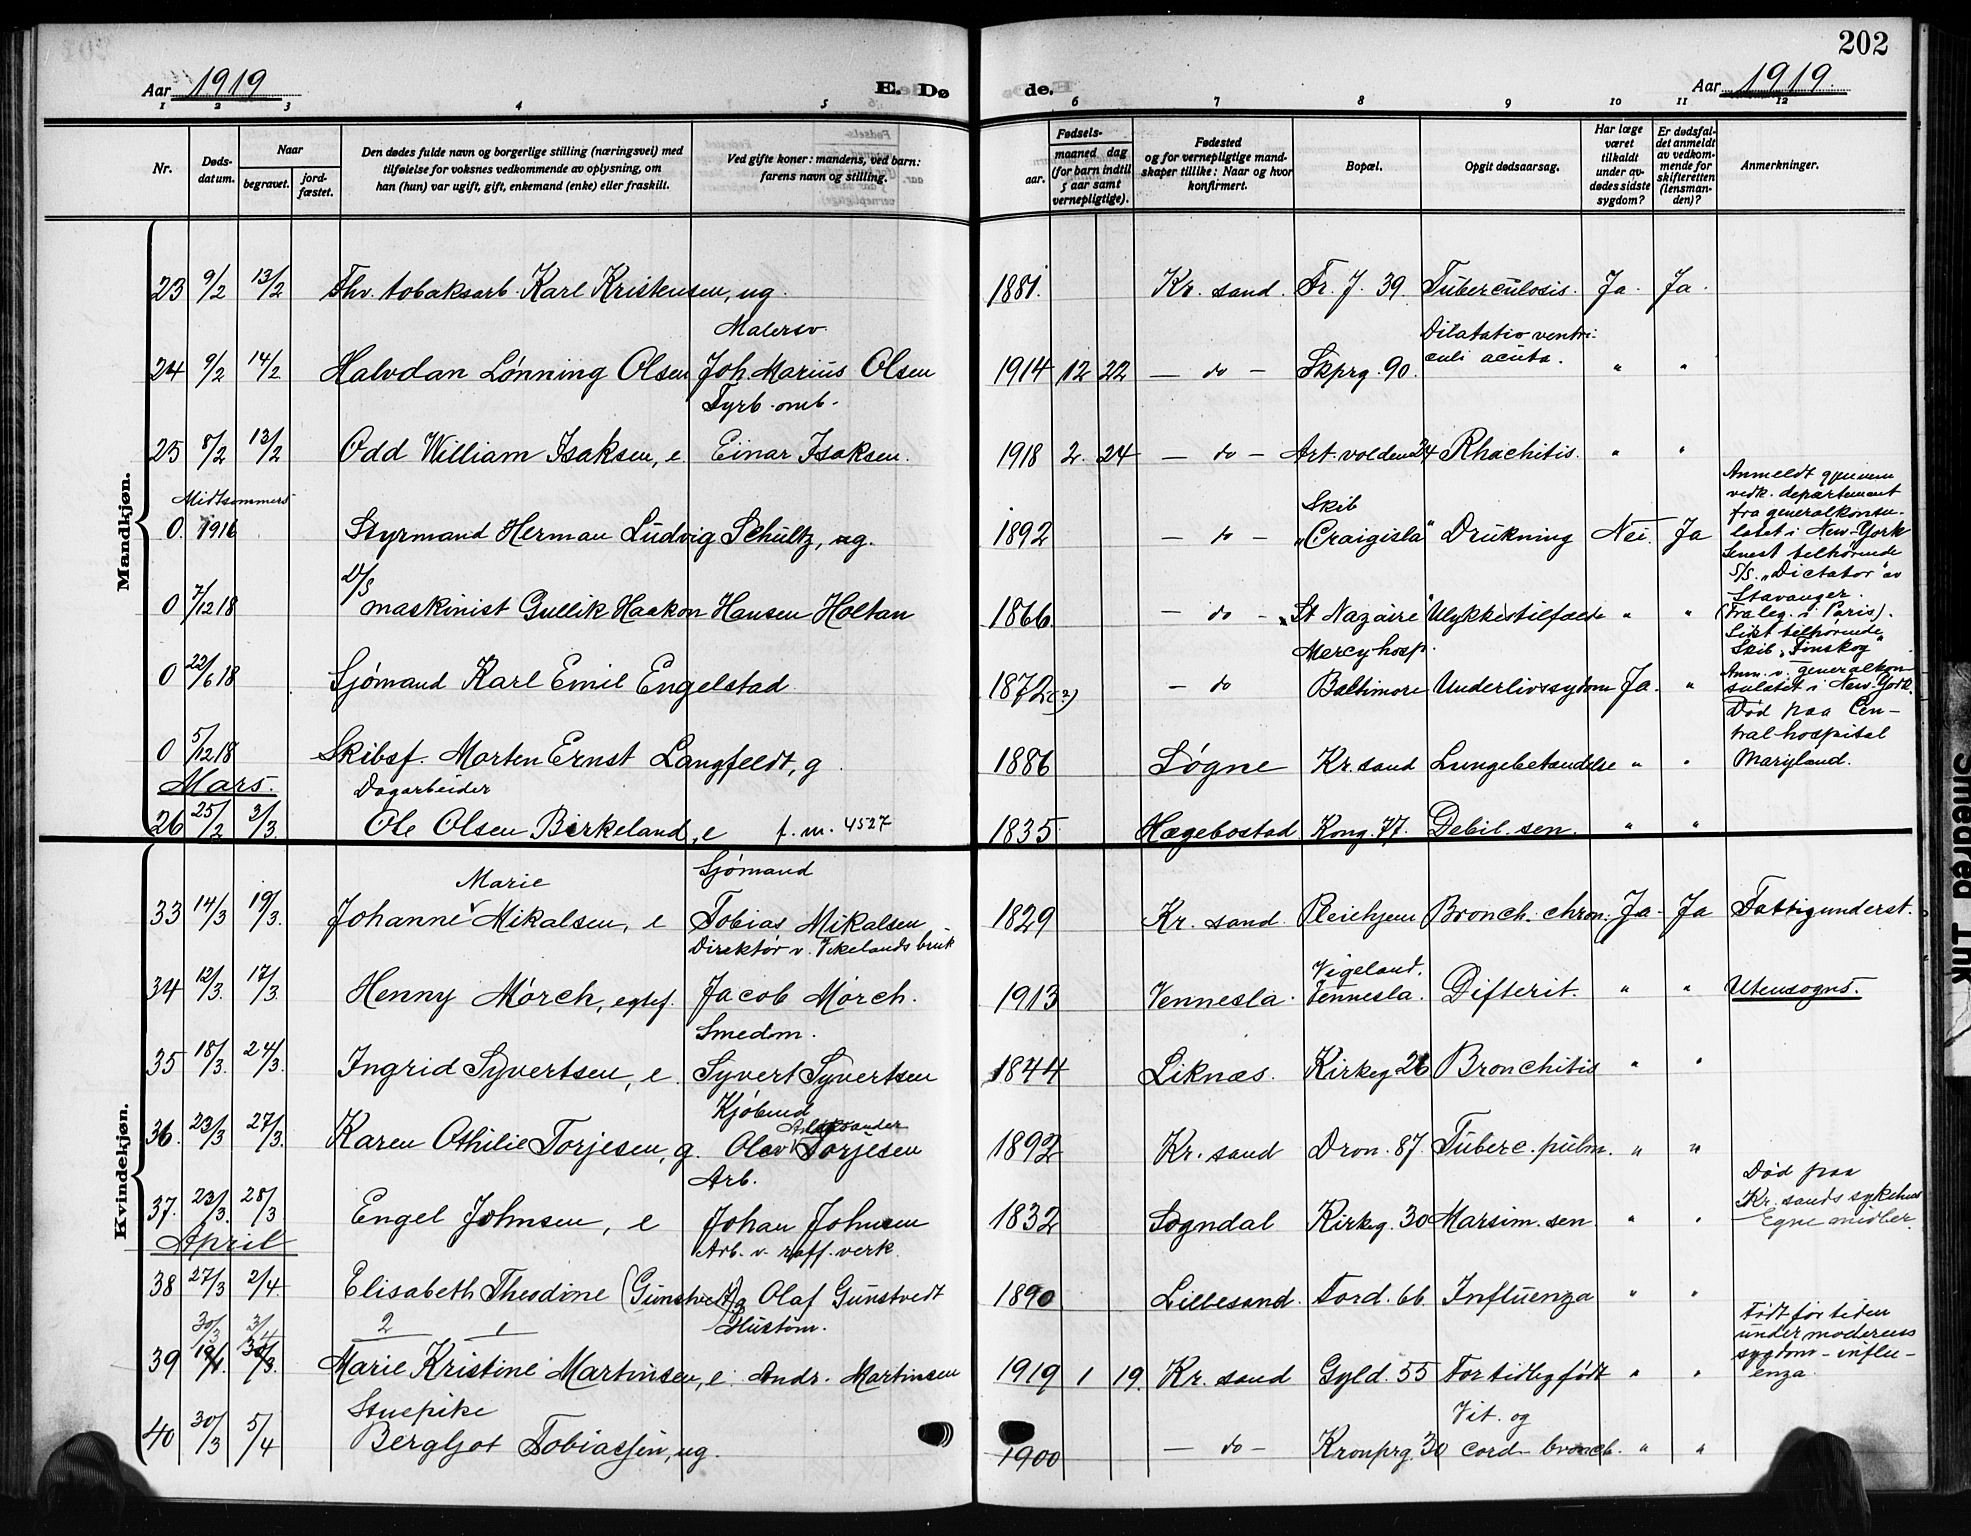 202
Aar 1919
E. Dø
de.
Aar 1919.
1 2 3 4 5 6 7 8 9 10 11 12
Nr.
Døds-
datum.
Naar
begravet.
jord-
fæstet.
Den dødes fulde navn og borgerlige stilling (næringsvei) med
tilføielse for voksnes vedkommende av oplysning, om
han (hun) var ugift, gift, enkemand (enke) eller fraskilt.
Ved gifte koner: mandens, ved barn:
farens navn og stilling.
Fødsels-
aar.
maaned dag
(for barn indtil
5 aar samt
vernepligtige).
Fødested
og for vernepligtige mand-
skaper tillike: Naar og hvor
konfirmert.
Bopæl.
Opgit dødsaarsag.
Har læge
været
tilkaldt
under av-
dødes sidste
sygdom?
Er dødsfal-
det anmeldt
av vedkom-
mende for
skifteretten
(lensman-
den)?
Anmerkninger.
Mandkjøn.
23 9/2 13/2 Fhv. tobaksarb. Karl Kristensen, ug. 1881. Kr. sand. Fr. J. 39. Tuberculosis. Ja. Ja.
Malersv.
Dilatatio ventri-
24 9/2 14/2 Halvdan Lønning Olsen Joh. Marius Olsen 1914 12 22 — do — Skprg. 90. culi acuta. " "
Fyrb. omb.
25 8/2 13/2 Odd William Isaksen, e. Einar Isaksen. 1918 2 24 — do — Art. volden 24 Rhachitis. " "
Midtsommers
0. 1916 Styrmand Herman Ludvig Schultz, ug. 1892 — do — Skib "Craigisla" Drukning Nei. Ja
Anmeldt gjennem
vedk. departement
fra generalkonsu-
latet i New-York
Senest tilhørende
S/S. "Dictator" av
Stavanger.
0 7/12 18 D/S maskinist Gullik Haakon Hansen Holtan 1866. — do — "St Nazaire" Ulykkestilfælde " " (Fra leg. i Paris).
Sist tilhørende
Skib "Finskog"
0 22/6 18 Sjømand Karl Emil Engelstad 1872(?) — do Mercy hosp. Baltimore Underlivssygdom Ja. "
Anm. v. generalkon-
sulatet i New-York.
Død paa Cen-
tral hospital
Maryland.
0 5/12 18 Skibsf. Morten Ernst Langfeldt, g. 1886 Søgne Kr. sand Lungebetændelse " "
Mars.
Dagarbeider
26 25/2 3/3 Ole Olsen Birkeland, e f. m. 4527 1835 Hægebostad Kong. 77. Debil. sen. " "
Kvindekjøn.
Marie Sjømand
33 14/3 19/3. Johanne Mikalsen, e Tobias Mikalsen 1829 Kr. sand. Pleiehjem Bronch. chron. Ja. Ja Fattigunderst.
Direktør v. Vikelands bruk
34 12/3. 17/3. Henny Mørch, egtef. Jacob Mørch. 1913 Vennesla. Vigeland. Vennesla. Difterit. " " Utensogns.
Smedm.
35 18/3. 24/3. Ingrid Syvertsen, e. Syvert Syvertsen 1844 Liknæs. Kirkeg 26 Bronchitis " "
Kjøbmd
Aleksander
36. 23/3 27/3. Karen Othilie Torjesen, g. Olav Torjesen 1892 Kr. sand Dron. 87. Tuberc. pulm. " "
Arb.
37. 23/3. 28/3 Engel Johnsen, e Johan Johnsen 1832 Sogndal Kirkeg. 30 Marsim. sen " "
Død paa
Kr. sands sykehus
Egne midler.
April
Arb. v. raff. verk.
38 27/3 2/4 Elisabeth Theodine (Gunstvedt) g Olaf Gunstvedt 1890 Lillesand. Tord. 66 Influenza " "
30/3 3/4 2 1 Hustøm.
39 19/1. 30/3. Marie Kristine Martinsen, e. Andr. Martinsen 1919 1 19. Kr. sand Gyld. 55 For tidlig født " "
Født før tiden
under moderens
sygdom - influ-
enza.
Stuepike
40 30/3 5/4 Bergljot Tobiassen, ug. 1900 — do — Kronprg. 30 Vit. og cord - bronch. " "
Smeared Ink